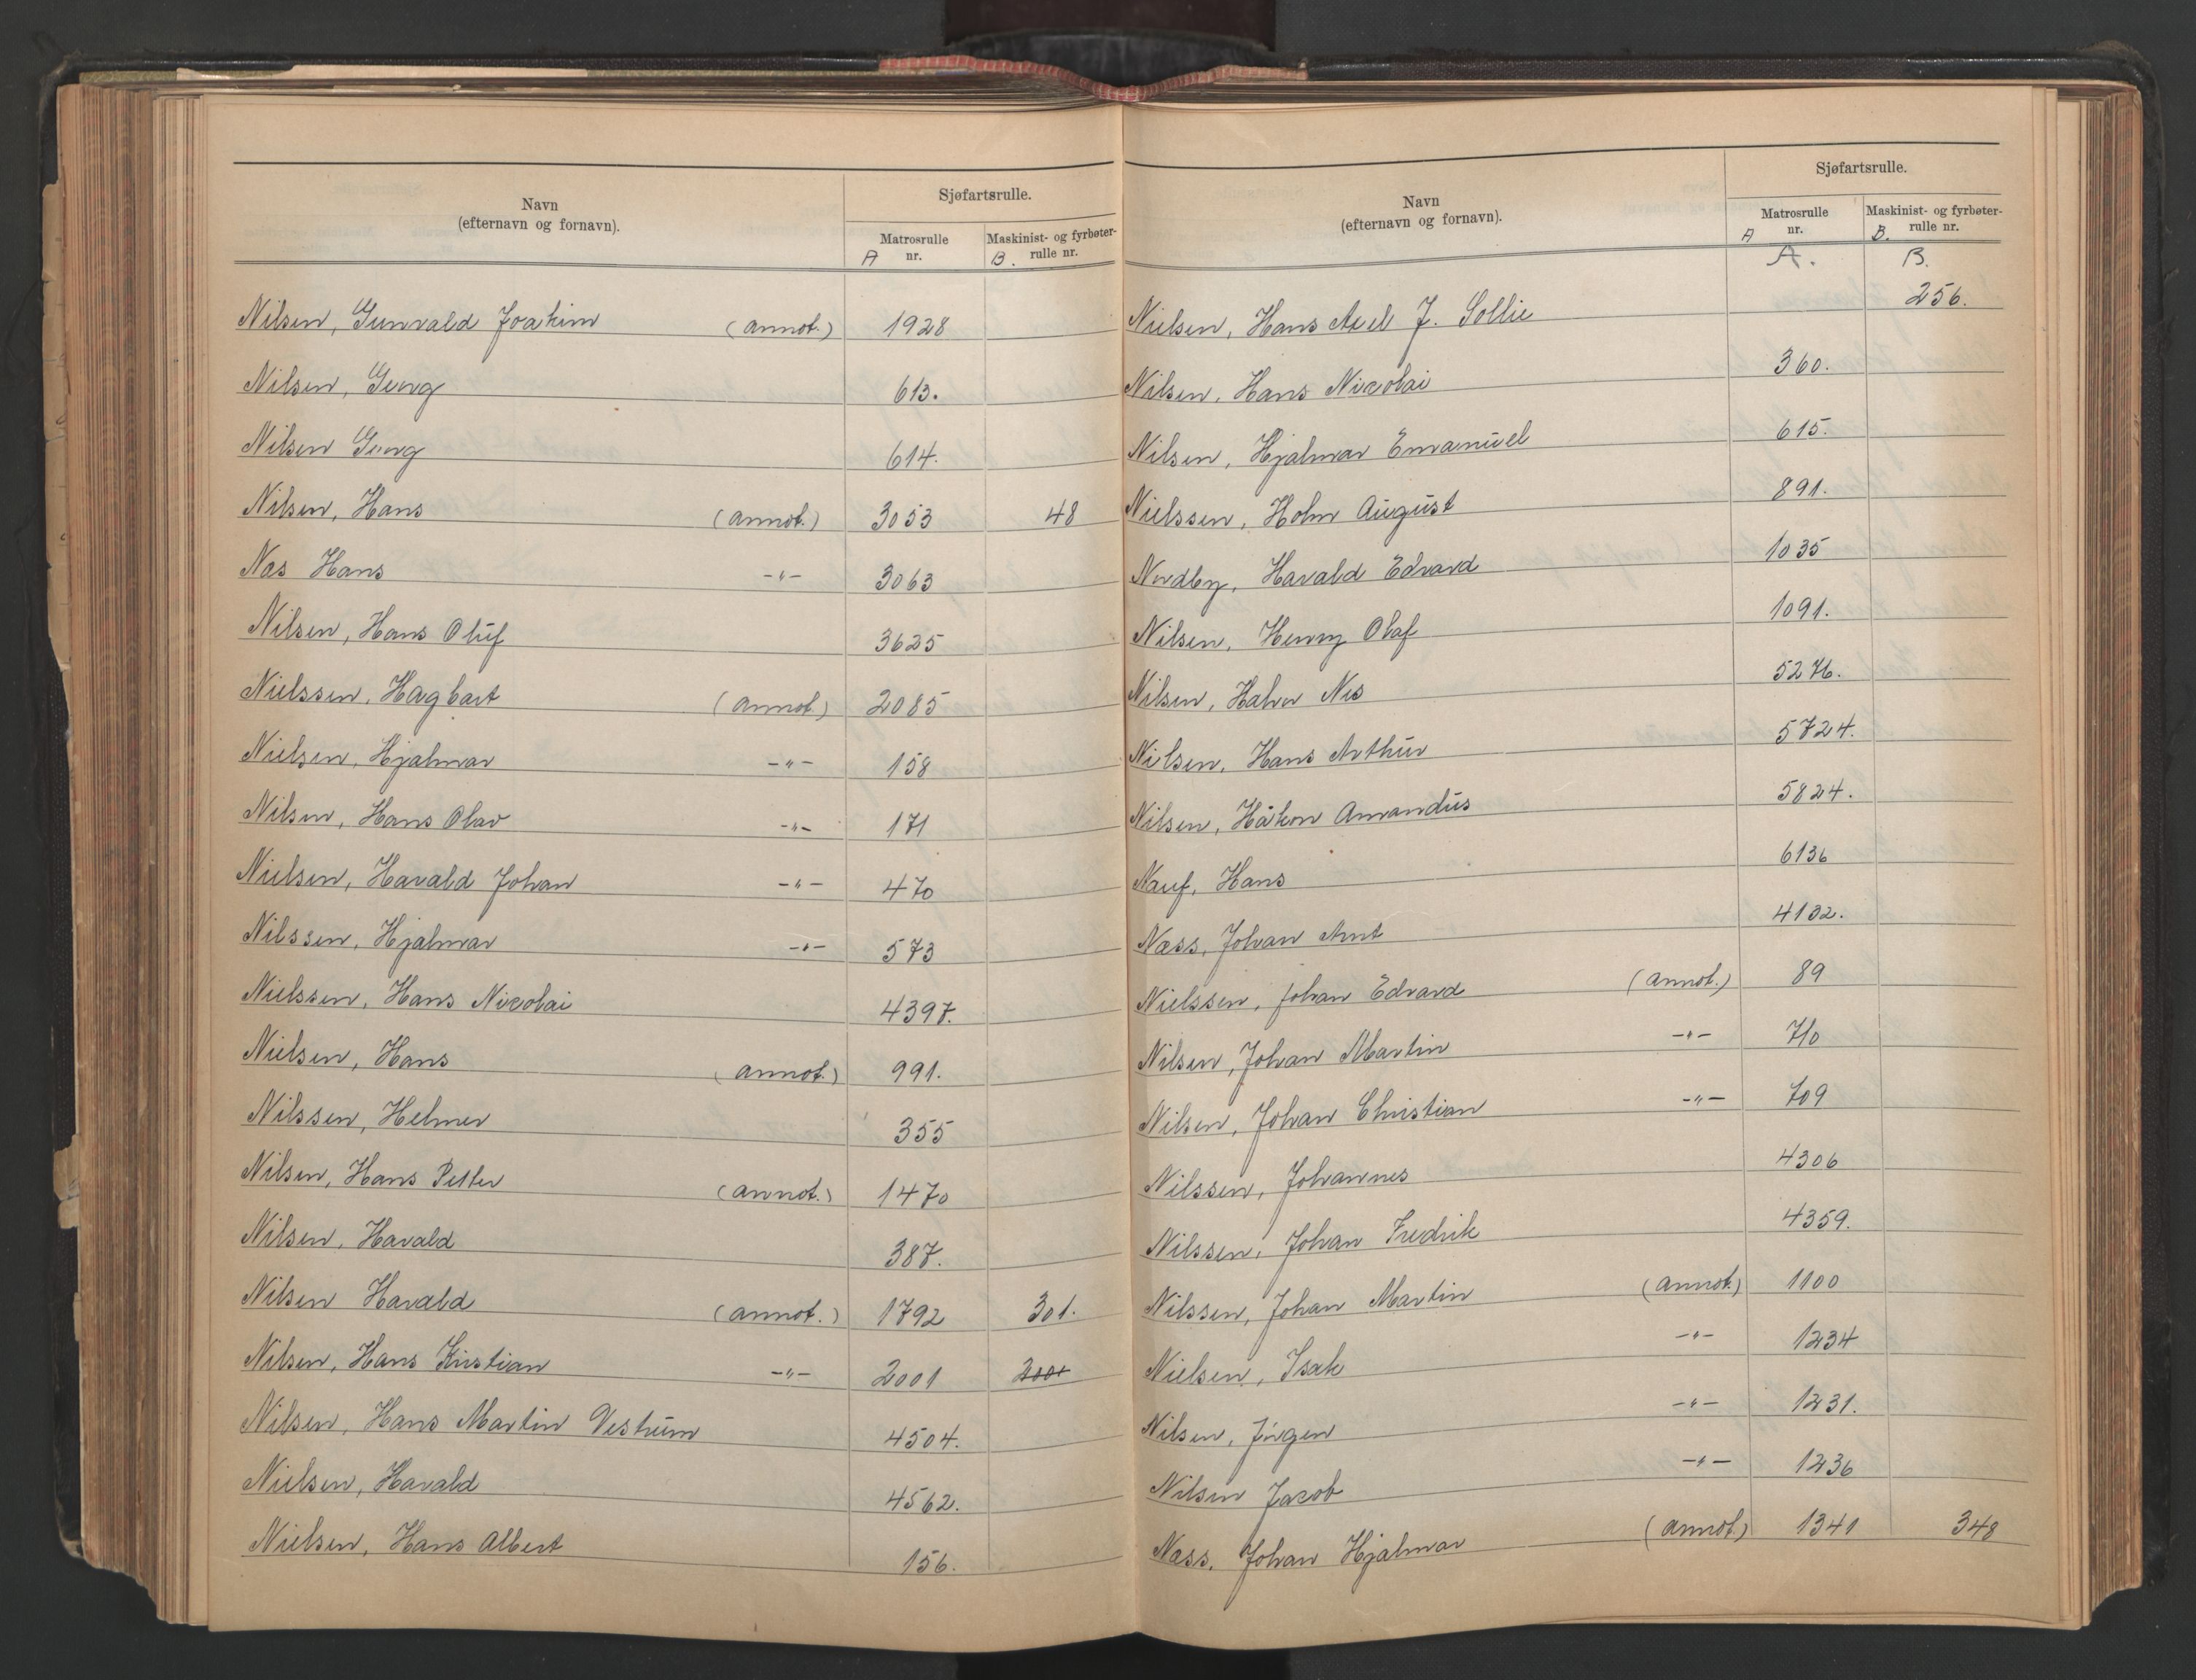 Navn
(efternavn og fornavn).
Sjøfartsrulle.
Matrosrulle
A nr.
Maskinist- og fyrbøter-
B. rulle nr.
Nilsen, Gunvald Joakim (annot.) 1928
Nilsen, Georg 613.
Nilsen Georg 614.
Nilsen, Hans (annot.) 3053 48
Næs Hans -"- 3063
Nilsen, Hans Oluf 3625
Nielssen, Hagbart (annot.) 2085
Nielsen, Hjalmar -"- 158
Nilsen, Hans Olav -"- 171
Nielsen, Harald Johan -"- 470
Nilssen, Hjalmar -"- 573
Nielssen, Hans Nicolai 4397.
Nielsen, Hans (annot.) 991.
Nilssen, Helmer 355
Nilsen, Hans Petter (annot.) 1470
Nilsen, Harald 387.
Nilsen Harald (annot.) 1792 301.
Nilsen, Hans Kristian -"- 2001 2001
Nilsen, Hans Martin Vestrum 4504.
Nielsen, Harald 4562.
Nielsen, Hans Albert 156.
Navn
(efternavn og fornavn).
Sjøfartsrulle.
Matrosrulle
A nr.
Maskinist- og fyrbøter-
B. rulle nr.
A. B.
Nielsen, Hans Axel J. Sollie 256.
Nilsen, Hans Nicolai 360.
Nilsen, Hjalmar Emanuel 615.
Nielssen, Holm August 891.
Nordby, Harald Edvard 1035
Nilsen, Henry Olaf 1091.
Nilsen, Halvor Nes 5276.
Nielsen, Hans Arthur 5724.
Nilsen, Håkon Amandus 5824.
Nauf, Hans 6136
Næss, Johan Arnt 4132.
Nielssen, Johan Edvard (annot.) 89
Nilsen, Johan Martin -"- 710
Nilsen, Johan Christian -"- 709
Nilssen, Johannes 4306
Nilssen, Johan Fredrik 4359.
Nilssen, Johan Martin (annot.) 1100
Nielsen, Isak -"- 1234
Nilsen, Jörgen -"- 1231.
Nilsen Jacob -"- 1236
Næss, Johan Hjalmar (annot) 1341 348